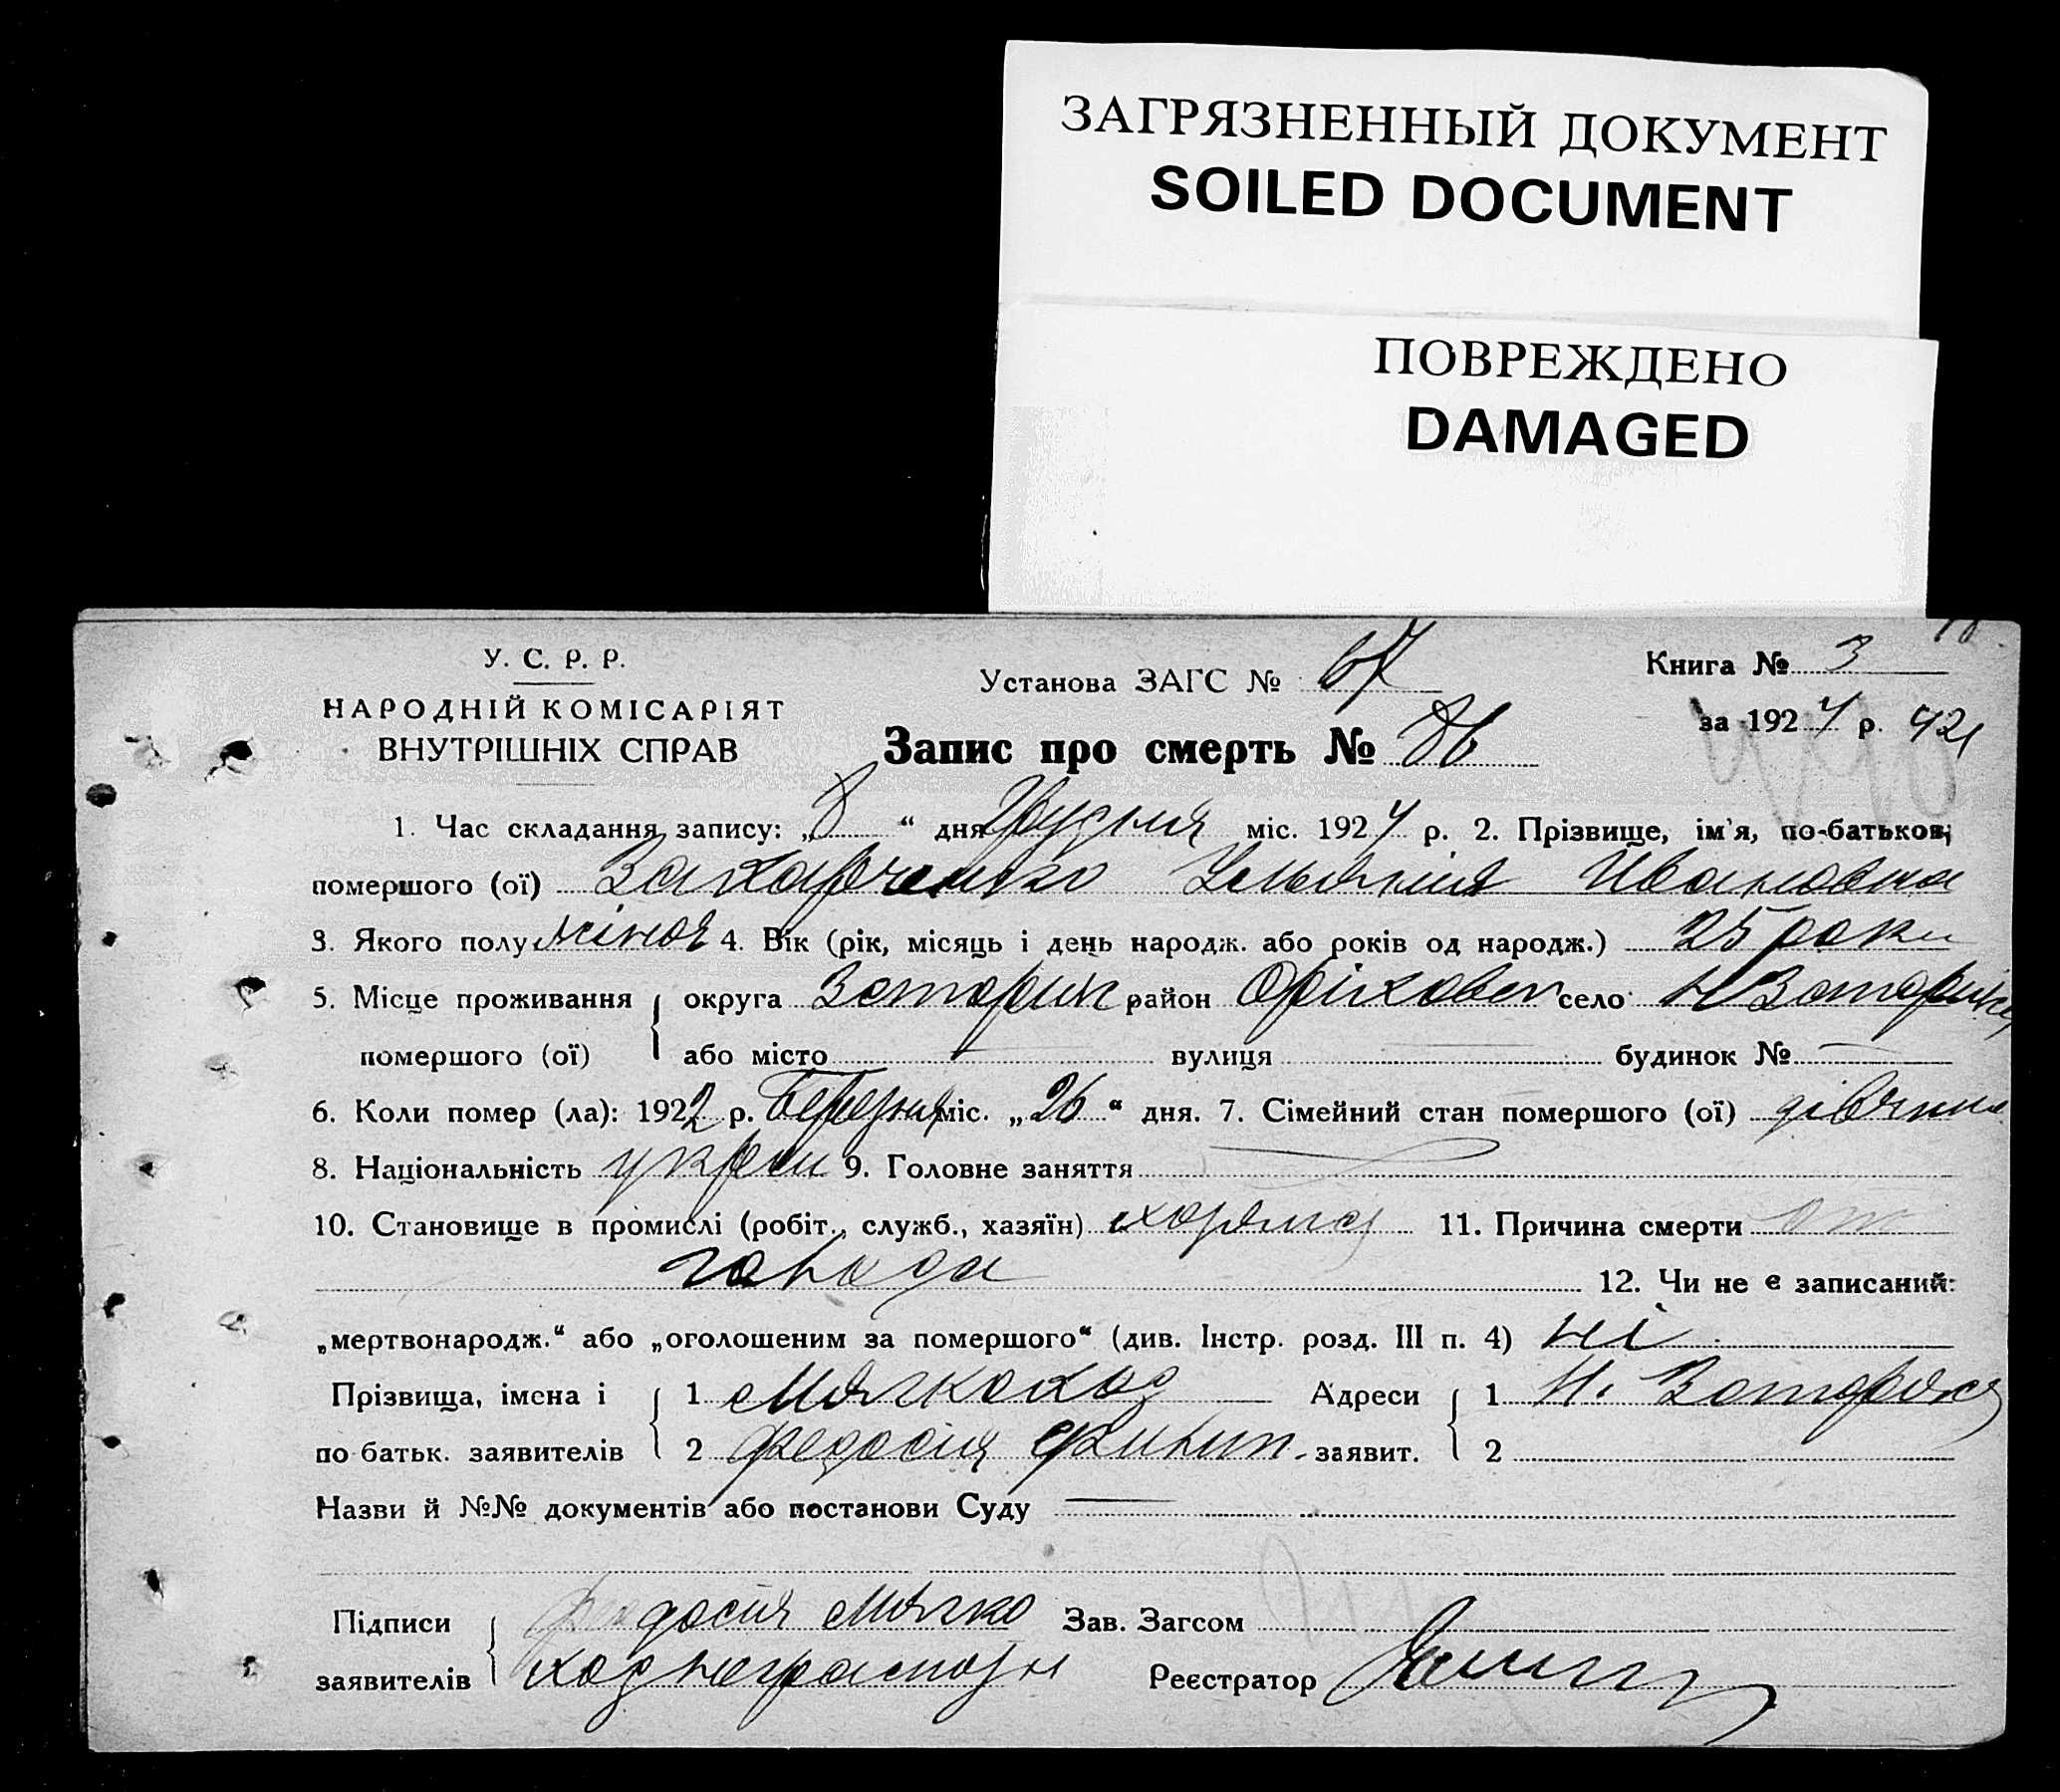 ЗАГРЯЗНЕННЫЙ ДОКУМЕНТ
SOILED DOCUMENT
ПОВРЕЖДЕНО
DAMAGED
У. С. Р. Р.
НАРОДНІЙ КОМІСАРІЯТ
ВНУТРІШНІХ СПРАВ
Установа ЗАГС № 67
Запис про смерть № 86
Книга № 3
за 1924 р. 421
1. Час складання запису: „8 “ дня Грудня міс. 1924 р. 2. Прізвище, ім'я, по-батькові
помершого (ої) Захарченко Ивановна
3. Якого полу жіноя 4. Вік (рік, місяць і день народж. або років од народж.) 25 роки
5. Місце проживання округа Запориж район Оріховсп село Н Запорижя
помершого (ої) або місто вулиця будинок №
6. Коли помер (ла): 1922 р. Березня міс. „26“ дня. 7. Сімейний стан помершого (ої) дівчина
8. Національність украи 9. Головне заняття
10. Становище в промислі (робіт., служб., хазяїн) 11. Причина смерти от
голода 12. Чи не є записаний:
„мертвонародж.“ або „оголошеним за померщого“ (див. Інстр. розд. III п. 4) ні
Прізвища, імена і 1 Мягкоход Адреси 1 Н. Запорожя
по батьк. заявителів 2 Федосия Филип. заявит. 2
Назви й №№ документів або постанови Суду
Підписи Феодосия Мягко Зав. Загсом
заявителів ход неграмотн Реєстратор